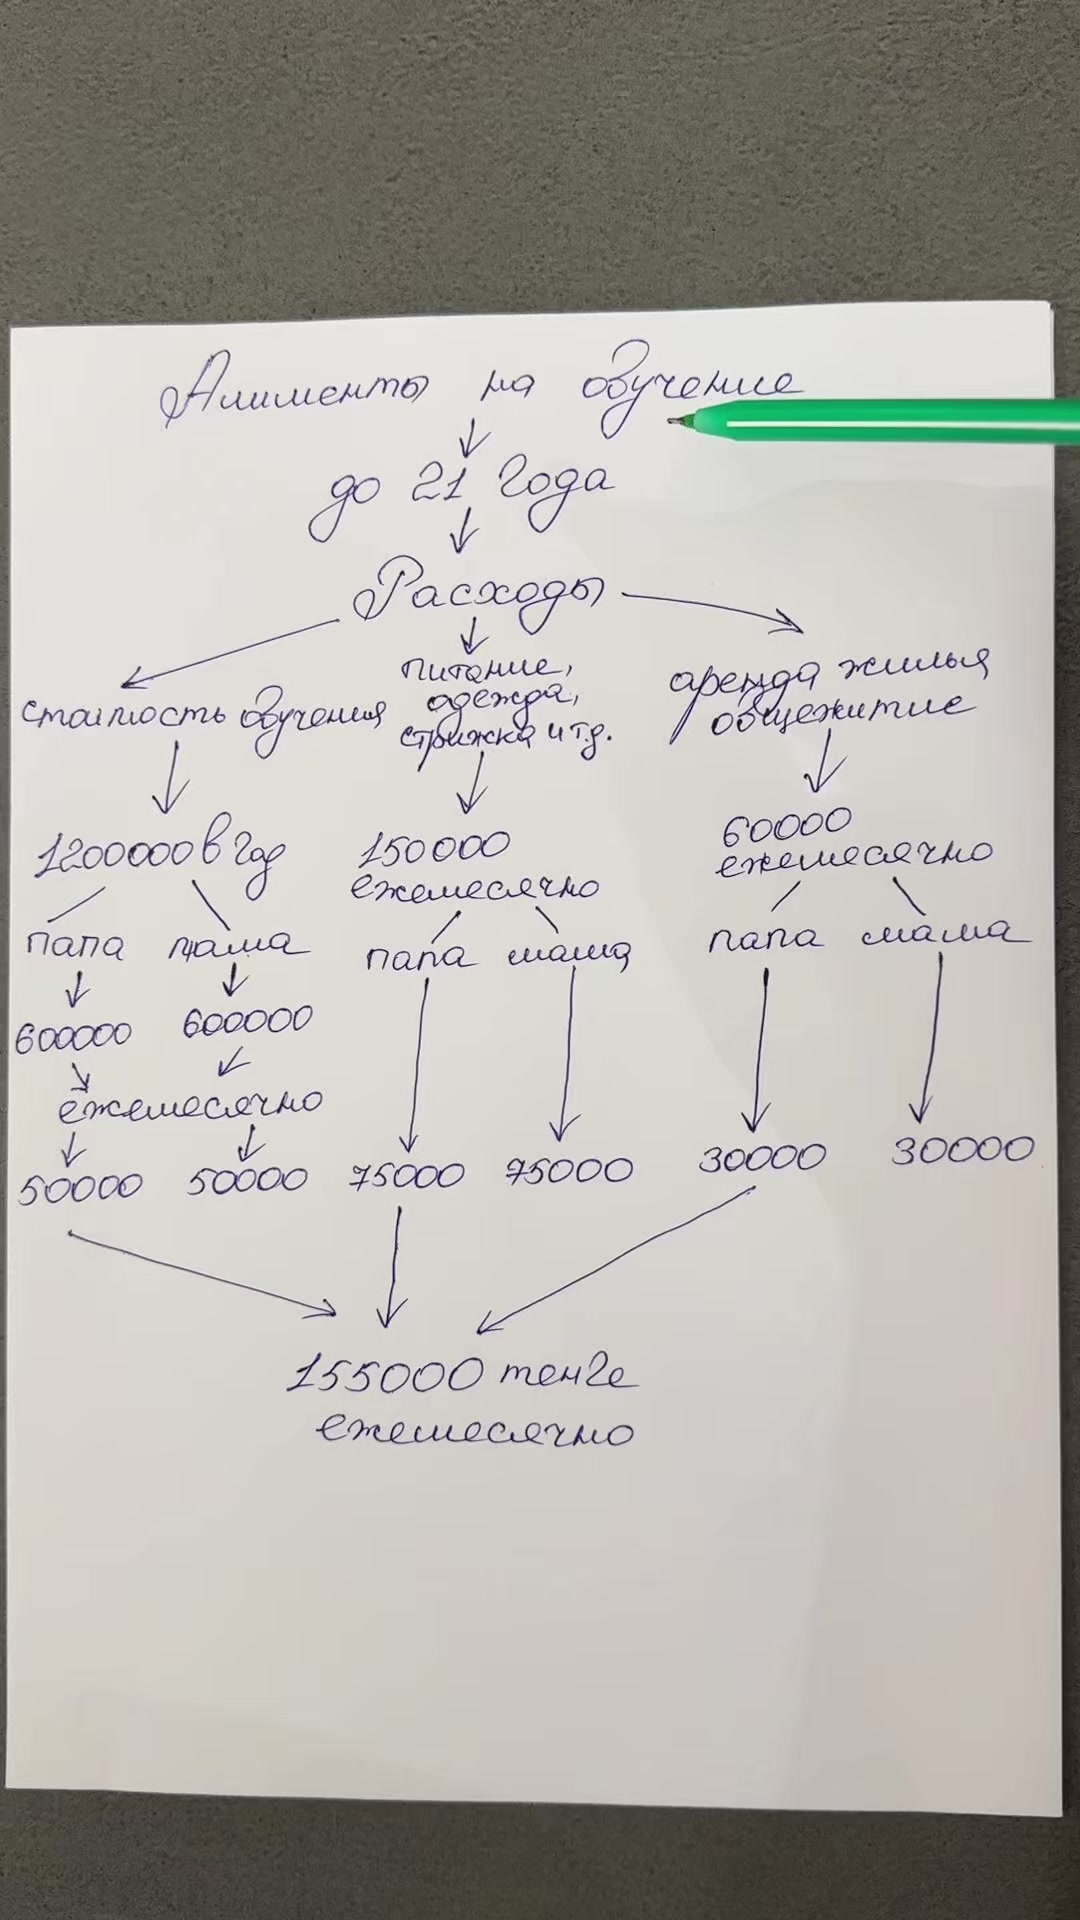 Алименты на обучение
до 21 года
Расходы
стоимость обучения
питание,
одежда,
стрижка и т.д.
аренда жилья
общежитие
1200000 в год
150000
ежемесячно
60000
ежемесячно
папа мама
папа мама
папа мама
600000 600000
ежемесячно
50000 50000 75000 75000 30000 30000
155000 тенге
ежемесячно